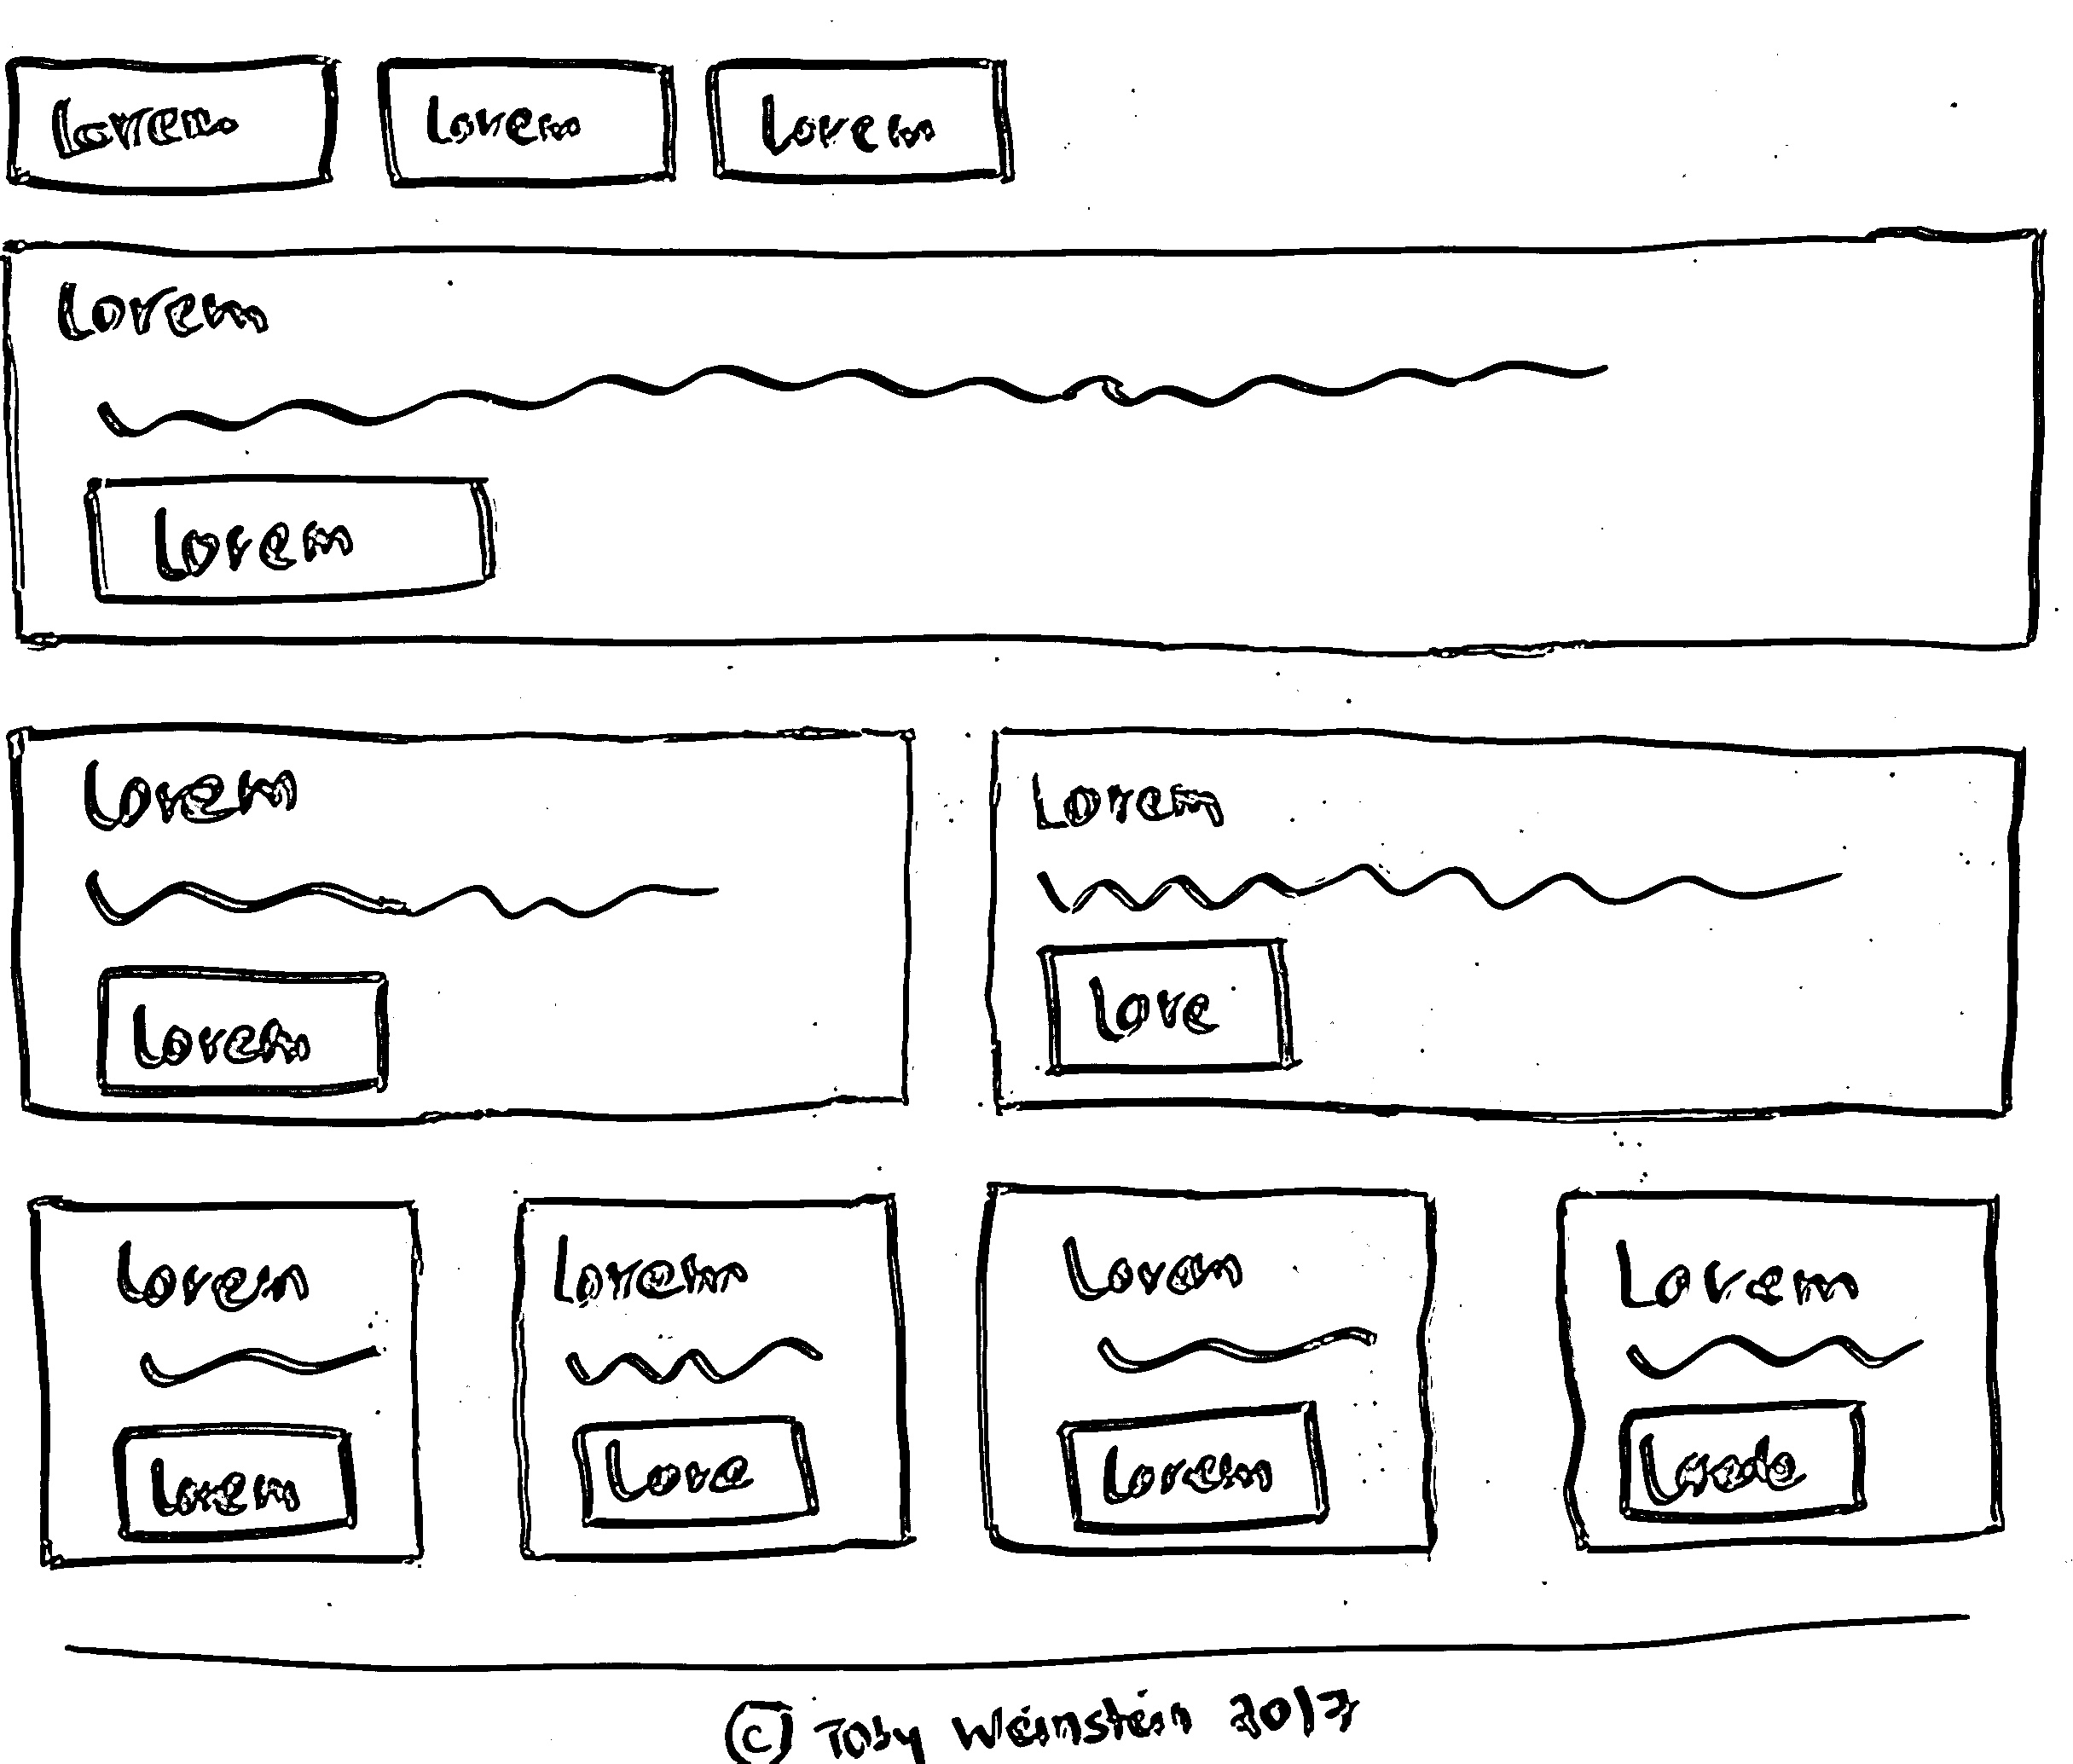 Lorem Lorem Lorem
Lorem
Lorem
Lorem Lorem
Lorem Love
Lorem Lorem Lorem Lorem
Lorem Love Lorem
© Toby Weinstein 2017